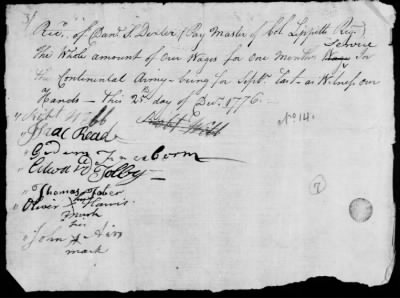 Rec.d of Dan.l S. Dexter (Pay Master of Col Lippett Reg.t)
the Whole amount of our Wages for One Months Service In
the Continental Army – being for Sept.r Last – as Witness our
Hands – this 28th day of Dec.r 1776 –
Robt Webb
No 14
Isaac Read
Gideon Freeborn
Edward Tolby
Thomas Tober
Oliver his X mark Harris
John his X mark
7